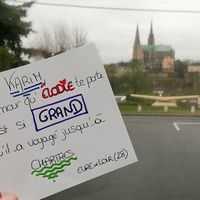 KARIM,
l'amour qu'ELODIE te porte
est si GRAND
qu'il a voyagé jusqu'à
CHARTRES
EURE et LOIR (28)